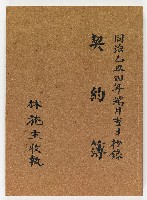 同治乙丑四年端月吉日抄錄
契約簿
林龍生收執